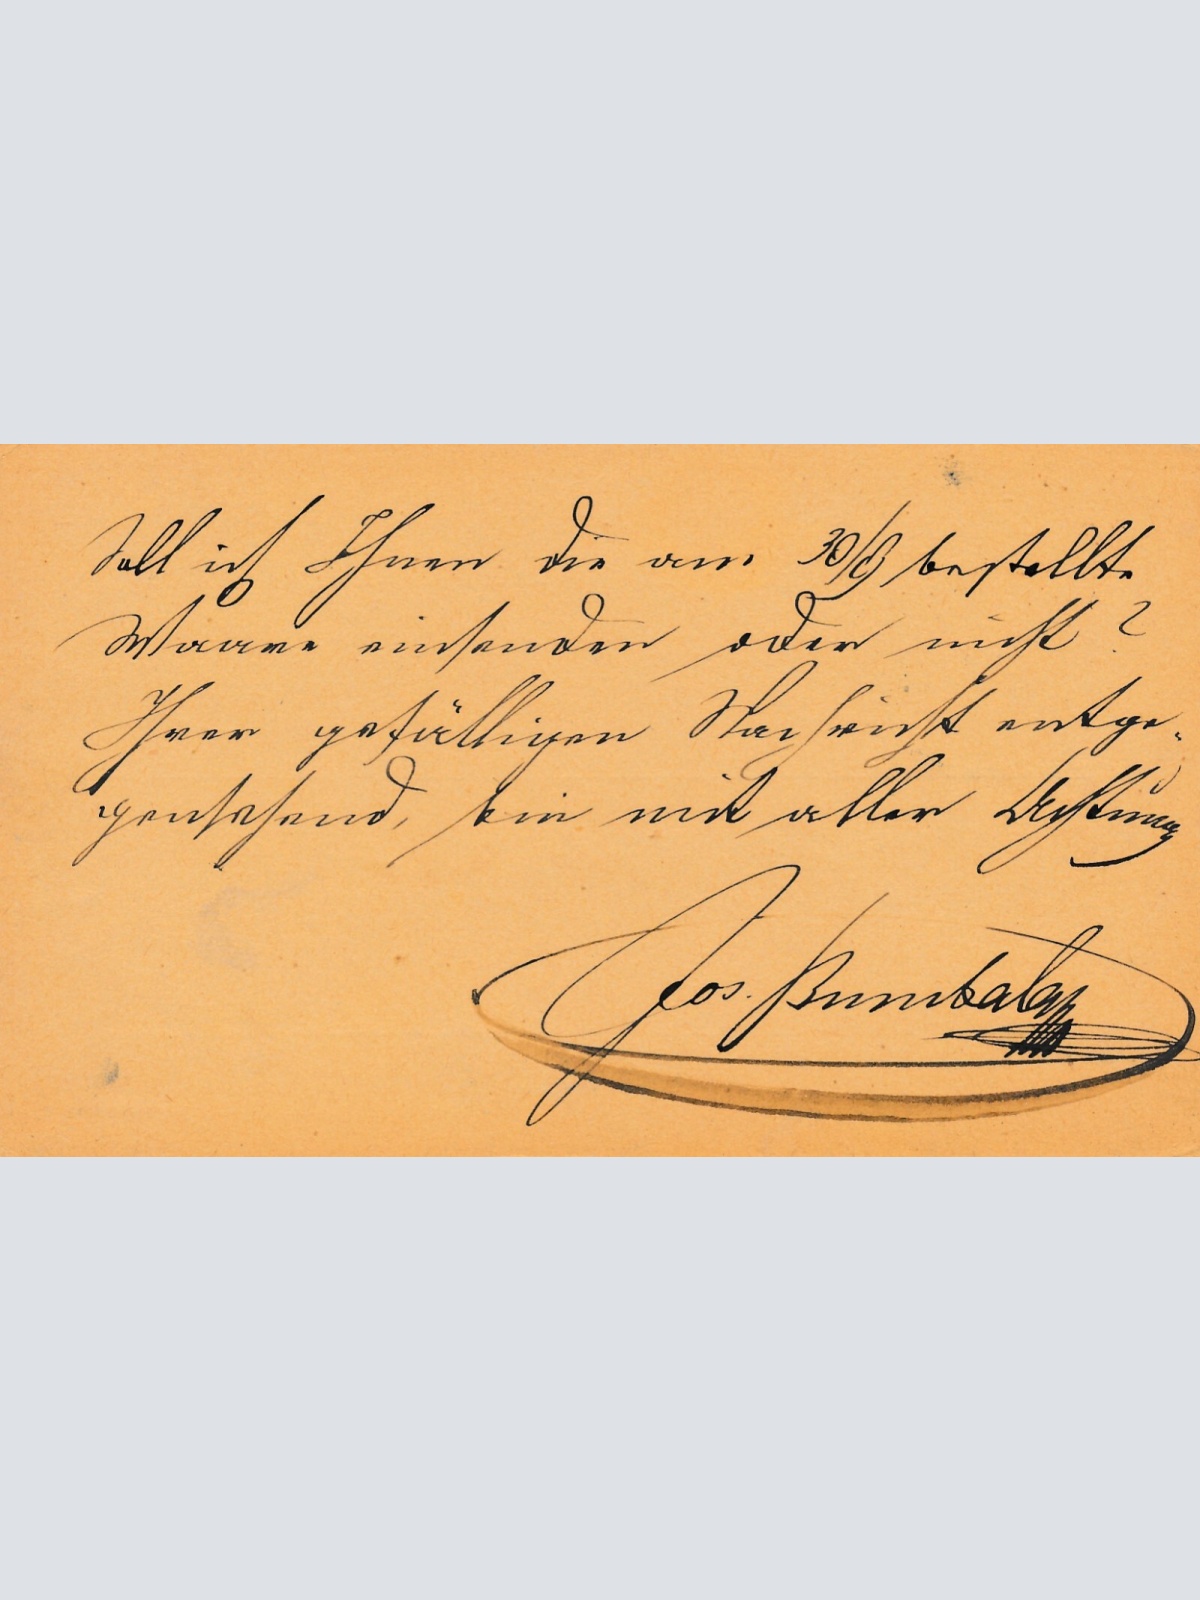 Soll ich Ihnen die am bestellte
Waare einsenden oder nicht?
Ihrer gefälligen Nachricht entge-
gensehend, bin mit aller Achtung
Jos.